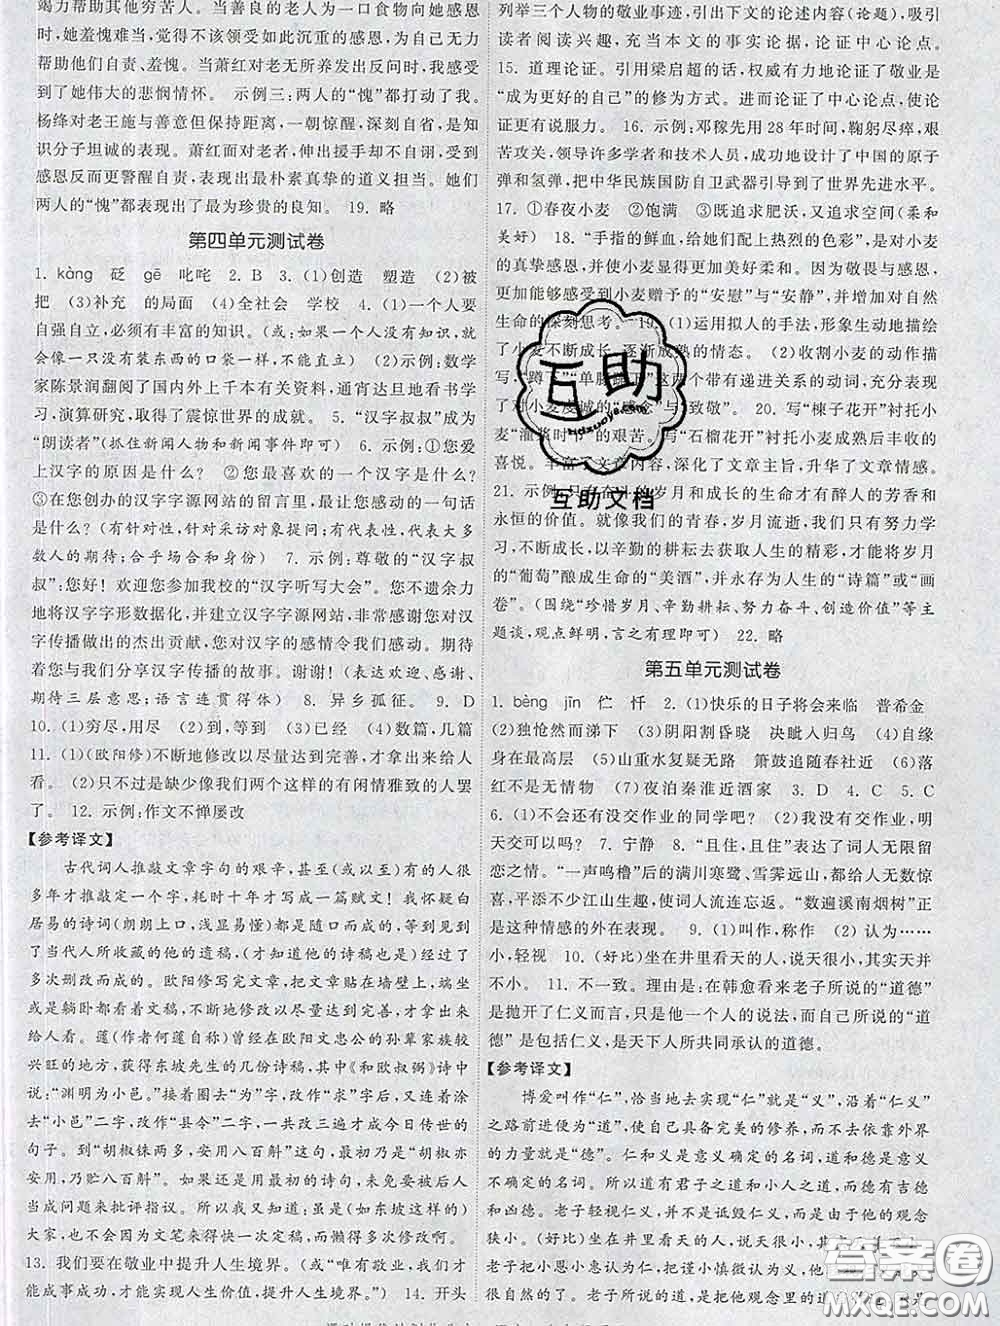 竭力帮助其他穷苦人。当善良的老人为一口食物向她感恩
时,她羞愧难当,觉得不该得到如此沉重的感恩,为自己无力
帮助他们自责、羞愧。当萧红对老无所养发出反问时,我感受
到了她伟大的悲悯情怀。 示例三:两人的“愧”都打动了我。
杨绛对老王施与善意但保持距离,一朝惊醒,深刻自省,是知
识分子坦诚的表现。萧红面对老者,伸出援手却不自诩,受到
感恩反而更警醒自责,表现出最朴素真挚的道义担当。她们
两人的“愧”都表现出了最为珍贵的良知。 19. 略
第四单元测试卷
1. kàng 砭 gē 叱咤 2. B 3. (1)创造 塑造 (2)被
把 (3)补充 的局面 (4)全社会 学校 4. (1)一个人要
自强自立,必须有丰富的知识。(或:如果一个人没有知识,就
会像一只没有装东西的口袋一样,不能直立) (2)示例:数学
家陈景润翻阅了国内外上千本有关资料,通宵达旦地看书学
习,演算研究,取得了震惊世界的成就。 5. “汉字叔叔”成为
“朗读者”(抓住新闻人物和新闻事件即可) 6. 示例:①您爱
上汉字的原因是什么? ②您最喜欢的一个汉字是什么?
③在您创办的汉字字源网站的留言里,最让您感动的一句话
是什么?(有针对性,针对采访对象提问;有代表性,代表大多
数人的期待;合乎场合和身份) 7. 示例:尊敬的“汉字叔
叔”:您好! 欢迎您参加我校的“汉字听写大会”。您不遗余力
地将汉字字形数据化,并建立汉字字源网站,非常感谢您对汉
字传播做出的杰出贡献,您对汉字的感情令我们感动。期待
着您与我们分享汉字传播的故事。谢谢!(表达欢迎、感谢、
期待三层意思;语言连贯得体) 8. 异乡孤征。 9. D
10. (1)穷尽,用尽 (2)到,等到 (3)已经 (4)数篇,几篇
11. (1)(欧阳修)不断地修改以尽量达到完善,才拿出来给人
看。 (2)只不过是缺少像我们两个这样的有闲情雅致的人罢
了。 12. 示例:作文不惮屡改
【参考译文】
古代词人推敲文章字句的艰辛,甚至(或以至)有的人很
多年才推敲定一个字,耗时十年才写成一篇赋文! 我怀疑白
居易的诗词(朗朗上口,浅显易懂)都是随口而成的,等到见到
了当代人所收藏的他的遗稿,(才知道他的诗词)也是经过了
多次删改而成的。欧阳修写完文章,把文章贴在墙壁上,端坐
或是躺卧都看着它,不断地修改以尽量达到完善,才拿出来
给人看。薳(作者何薳自称)曾经在欧阳文忠公的孙辈家族较
兴旺的地方,获得东坡先生的几份诗稿,其中《和欧叔弼》诗中
说:“渊明为小邑。”接着圈去“为”字,改作“求”字,后又连续涂
去“小邑”二字,改作“县令”二字,一共改三遍才成今日传世的
句子。到“胡椒铢两多,安用八百斛”这一句,最初乃是“胡椒亦
安用,乃贮八百斛”。如果还是用最初的诗句,未免要被后人
当成问题来批评指议。又才知道:虽是(如东坡这样的)行文
大家,也不会因为文笔来得快一次定稿,而懒得多次修改啊。
13. 我们要在敬业中提升人生境界。(或“唯有敬业,我们才
能成事成功,才能实现人生价值,提升人生境界。”) 14. 开头
列举三个人物的敬业事迹,引出下文的论述内容(论题),吸引
读者阅读兴趣,充当本文的事实论据,论证中心论点。
15. 道理论证。引用梁启超的话,权威有力地论证了敬业是
“成为更好的自己”的修为方式。进而论证了中心论点,使论
证更有说服力。 16. 示例:邓稼先用28年时间,鞠躬尽瘁,艰
苦攻关,领导许多学者和技术人员,成功地设计了中国的原子
弹和氢弹,把中华民族国防自卫武器引导到了世界先进水平。
17. ①春夜小麦 ②饱满 ③既追求肥沃,又追求空间(柔和
美好) 18. “手指的鲜血,给她们配上热烈的色彩”,是对小麦
的真挚感恩,并使小麦显得更加美好柔和。因为敬畏与感恩,
更加能够感觉到小麦赠予的“安慰”与“安静”,并增加对自然
生命的深刻思考。 19. (1)运用拟人的手法,形象生动地描绘
了小麦不断成长、逐渐成熟的情态。 (2)收割小麦的动作描
写,“蹲下”“单膝跪”这两个带有递进关系的动词,充分表现了
对小麦虔诚的“感念”与“致敬”。 20. 写“楝子花开”衬托小
麦“灌浆时节”的艰苦。写“石榴花开”衬托小麦成熟后丰收的
喜悦。丰富了文章内容,深化了文章主旨,升华了文章情感。
21. 示例:只有奋斗的岁月和成长的生命才有醉人的芳香和
永恒的价值。就像我们的青春,岁月流逝,我们只有努力学
习,不断成长,以辛勤的耕耘去获取人生的精彩,才能将岁月
的“葡萄”酿成生命的“美酒”,并永存为人生的“诗篇”或“画
卷”。(围绕“珍惜岁月、辛勤耕耘、努力奋斗、创造价值”等主
题谈,观点鲜明,言之有理即可) 22. 略
第五单元测试卷
1. bèng jīn 伫 忏 2. (1)快乐的日子将会来临 普希金
(2)独怆然而涕下 (3)阴阳割昏晓 决眦入归鸟 (4)自缘
身在最高层 (5)山重水复疑无路 箫鼓追随春社近 (6)落
红不是无情物 (7)夜泊秦淮近酒家 3. D 4. C 5. C
6. (1)不会还有没交作业的同学吧? (2)我没有交作业,明
天交可以吗? 7. 宁静 8. “且住,且住”表达了词人无限留
恋之情。“一声鸣橹”后的满川寒鹭、雪雾远山,都给人无数惊
喜,平添不少江山生趣,使词人流连忘返。“数遍溪南烟树”正
是这种情感的外在表现。 9. (1)叫作,称作 (2)认为……
小,轻视 10. (好比)坐在井里看天的人,说天很小,其实天并
不小。 11. 不一致。理由是:在韩愈看来老子所说的“道德”
是抛开了仁义而言的,只是他一个人的说法,而自己所说的“道
德”是包括仁义,是天下人所共同承认的道德。
【参考译文】
博爱叫作“仁”,恰当地去实现“仁”就是“义”,沿着“仁义”
之路前进便为“道”,使自己具备完美的修养,而不去依靠外界
的力量就是“德”。仁和义是意义确定的名词,道和德是意义
不确定的名词,所以道有君子之道和小人之道,而德有吉德
和凶德。老子轻视仁义,并不是诋毁仁义,而是由于他的观念
狭小。(好比)坐在井里看天的人,说天很小,其实天并不小。
老子把小恩小惠认为仁,把谨小慎微认为义,他轻视仁义就
很自然的了。老子所说的道,是把他观念里的道当作道,不是
互助
Hdzuoye.com
互助文档
答案圈
MXQE.COM